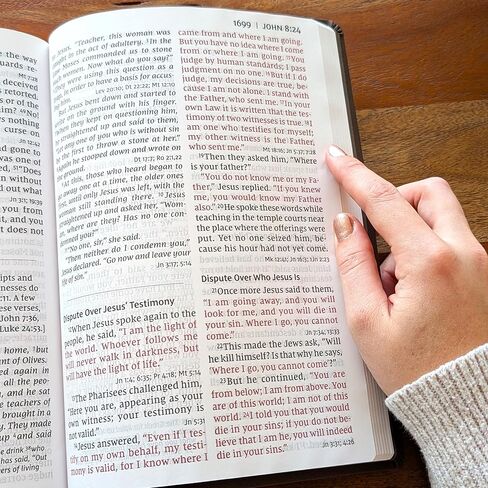 the way
Mt 7:28
deceived
retorted.
rs or of the
nothing
curse on
gone to
was one of
and not
nd out
from
ot, and you
not
ipts and
A few
verses,
Luke 24:53.]
home, but
of Olives.
again in
all the peo-
and he sat
teachers of
brought in a
They made
up and said
1699 | JOHN 8:24
Jesus, "Teacher, this woman was
in the act of adultery. 5In the
Moses commanded us to stone
women. Now what do you say?"
they were using this question as a
in order to have a basis for accus-
Lev 20:10; Dt 22:22; Mt 12:10
But Jesus bent down and started to
on the ground with his finger.
When they kept on questioning him,
straightened up and said to them,
any one of you who is without sin
be the first to throw a stone at her."
he stooped down and wrote on
Dt 17:7; Ro 2:1,22
At this, those who had heard began to
away one at a time, the older ones
first, until only Jesus was left, with the
woman still standing there. 10Jesus
straightened up and asked her, "Wom-
an, where are they? Has no one con-
demned you?"
"No one, sir," she said.
"Then neither do I condemn you,"
Jesus declared. "Go now and leave your
life of sin."
Jn 3:17; 5:14
Dispute Over Jesus' Testimony
12When Jesus spoke again to the
people, he said, "I am the light of
the world. Whoever follows me
will never walk in darkness, but
will have the light of life."
Jn 1:4; 6:35; Pr 4:18; Mt 5:14
13The Pharisees challenged him,
"Here you are, appearing as your
own witness; your testimony is
not valid."
Jn 5:31
14Jesus answered, "Even if I tes-
tify on my own behalf, my testi-
mony is valid, for I know where I
came from and where I am going.
But you have no idea where I come
from or where I am going. 15You
judge by human standards; I pass
judgment on no one. 16But if I do
judge, my decisions are true, be-
cause I am not alone. I stand with
the Father, who sent me. 17In your
own Law it is written that the tes-
timony of two witnesses is true. 18I
am one who testifies for myself;
my other witness is the Father,
who sent me."
Mt 18:16; Jn 5:37; 7:28
19Then they asked him, "Where
is your father?"
"You do not know me or my Fa-
ther," Jesus replied. "If you knew
me, you would know my Father
also." 20He spoke these words while
teaching in the temple courts near
the place where the offerings were
put. Yet no one seized him, be-
cause his hour had not yet come.
Mk 12:41; Jn 16:3; Jn 7:23
Dispute Over Who Jesus Is
21Once more Jesus said to them,
"I am going away, and you will
look for me, and you will die in
your sin. Where I go, you cannot
come."
Jn 7:34; 13:33
22This made the Jews ask, "Will
he kill himself? Is that why he says,
'Where I go, you cannot come'?"
23But he continued, "You are
from below; I am from above. You
are of this world; I am not of this
world. 24I told you that you would
die in your sins; if you do not be-
lieve that I am he, you will indeed
die in your sins."
Jn 3:31; 4:26